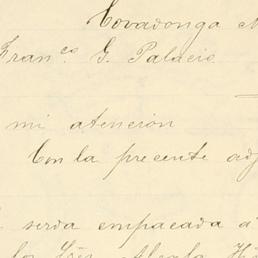 Covadonga
Fran.co G. Palacio
mi atención
Con la presente adj
serda empacada a
los Sres.